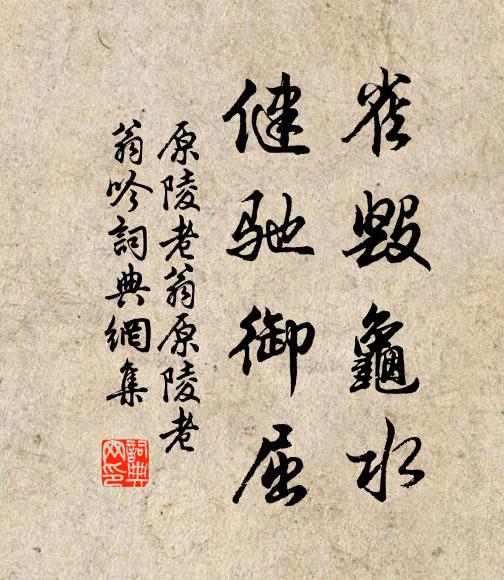 雀毀龜水
健馳御屈
原陵老翁原陵老
翁吟詞典網集
詞典
网印